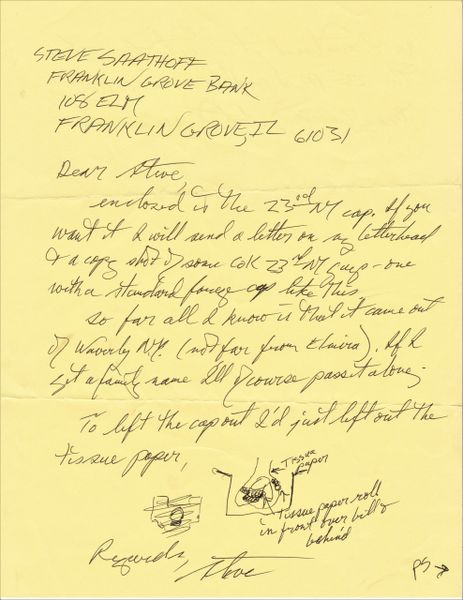 STEVE SAATHOFF
FRANKLIN GROVE BANK
108 ELM
FRANKLIN GROVE, IL 61031
Dear Steve,
enclosed is the 23rd NY cap. If you
want it I will send a letter on my letterhead
& a copy shot of some CoK 23rd NY guys - one
with a standard forage cap like this.
so far all I know is that it came out
of Waverly N.Y. (not far from Elmira). If I
get a family name I'll of course pass it along.
To lift the cap out I'd just lift out the
tissue paper,
Tissue
paper
Tissue paper roll
in front over bill &
behind
Regards,
Steve
PS →